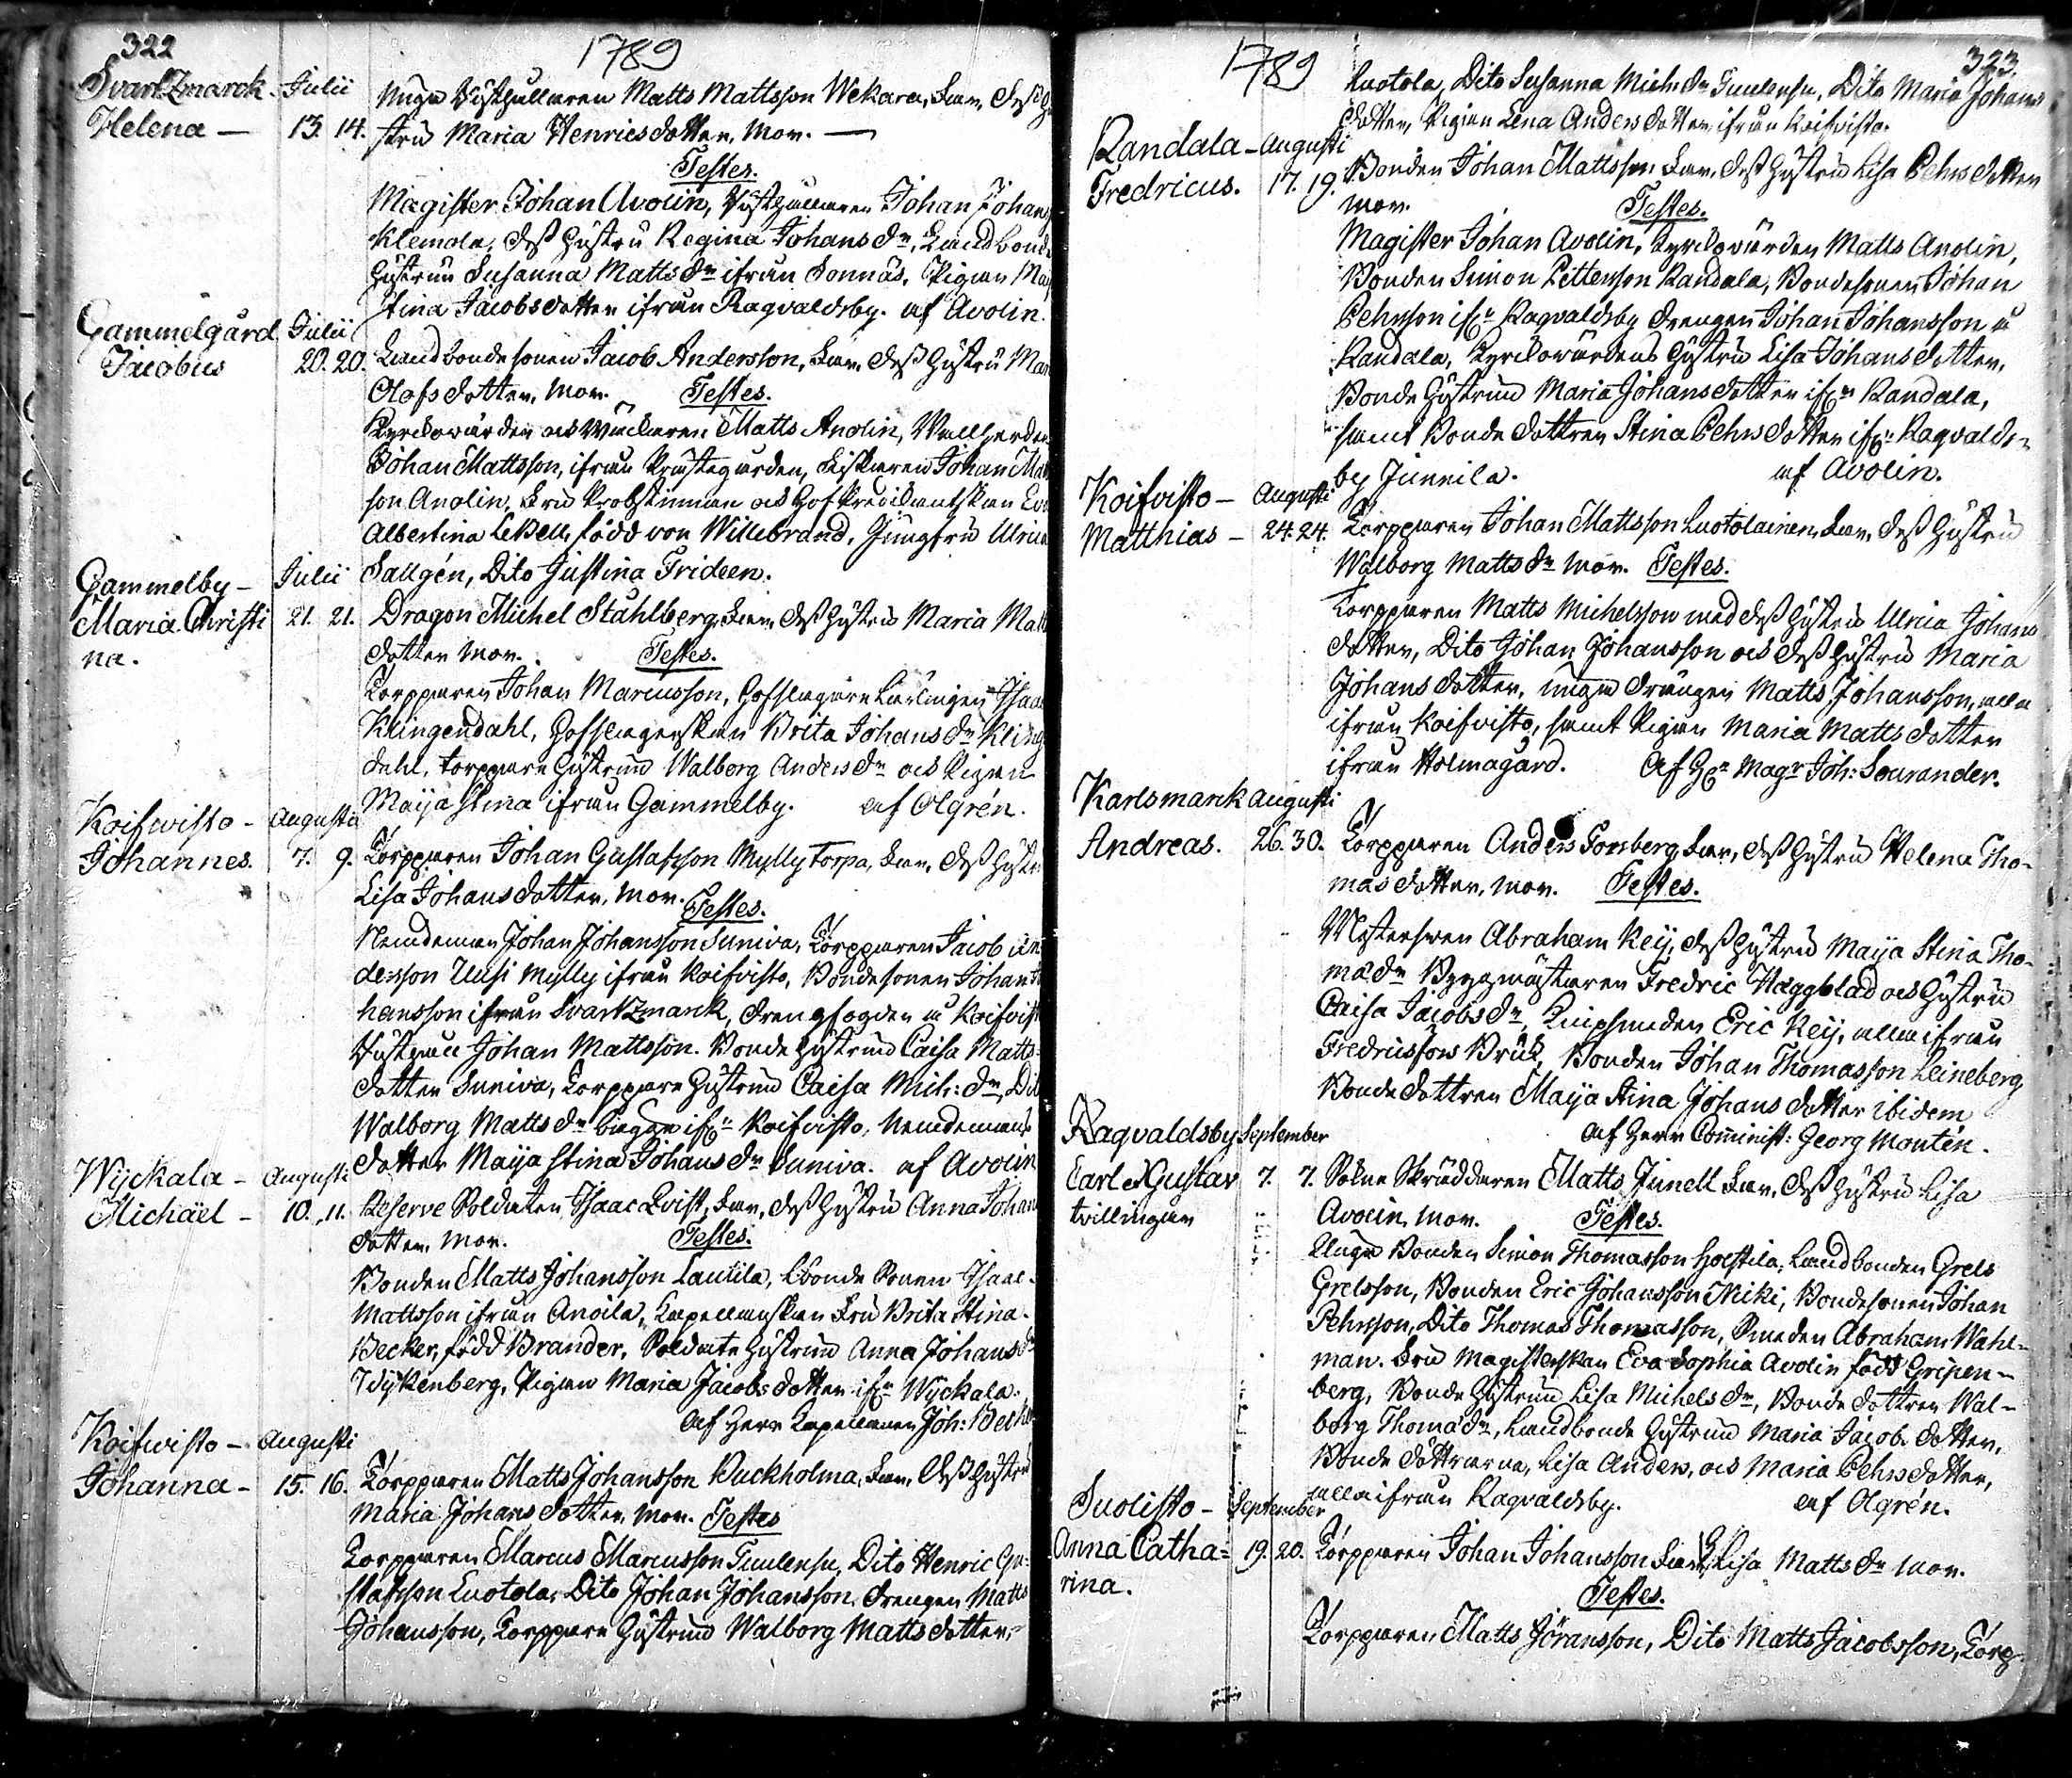 322
1789
Svartzmarck - Julii Unga Rusthållaren Matts Mattsson Wekara, Far, Dess hu
Helena - 13. 14. stru Maria Henricsdotter, Mor. -
Testes.
Magister Johan Avolin, Rusthållaren Johan Johans
Klemola, dess hustru Regina Johans dr, Landbonde
hustrun Susanna Matts dr ifrån Sonnäs, Pigan Maj
Stina Jacobsdotter ifrån Ragvaldsby. af Avolin.
Gammelgård Julii
Jacobus 20. 20. Landbondesonen Jacob Andersson, Far, dess hustru Mar
Olofsdotter, Mor. Testes.
Kyrckowärden och Matts Anolin,
Johan Mattsson, ifrån Prästegården, Fiskaren Johan Matts
son Anolin, Fru Probstinnan och Hofpredikantskan Eva
Albertina Lexell, född von Willebrand, Jungfru Ulrica
Gammelby - Julii Sallgén, Dito Justina Frideen.
Maria Christi 21. 21. Dragon Michel Stahlberg, Far, dess hustru Maria Matts
na. dotter Mor. Testes.
Torpparen Johan Marcusson, Hofslagare Lärlingen Isaac
Klingendahl, Hofslagerskan Brita Johans dr Kling
dahl, torppare hustrun Walborg Anders dr och Pigan
Maija Stina ifrån Gammelby. af Olgrén.
Koifwisto - Augusti
Johannes. 7. 9. Torpparen Johan Gustafsson Myllytorpa, Far, dess hustru
Lisa Johansdotter, Mor. Testes.
Nämdeman Johan Johansson Suniva, Torpparen Jacob An
dersson Uusi Mylly ifrån Koifvisto, Bondesonen Johan Jo
hansson ifrån Svartzmarck, drengfogden i Koifvisto
Johan Mattsson. Bonde hustrun Caisa Matts-
dotter Suniva, Torppare hustrun Caisa Mich: dr, Dito
Walborg Matts dr bägge ifrn Koifvisto, Nämdemans
dotter Maija Stina Johans dr Suniva. af Avolin
Wyckala - Augusti
Michäel - 10. 11. Reserve Soldaten Isaac Qvist, Far, dess hustru Anna Johans
dotter, Mor. Testes.
Bonden Matts Johansson Lautila, Bonde Sonen Isaac
Mattsson ifrån Anoila, Kapellanskan Fru Brita Stina
Becker, född Brander, Soldate hustrun Anna Johans dr
Wykenberg, Pigan Maria Jacobs dotter ifrn Wyckala.
af Herr Kapellanen Joh: Becker
Koifwisto - Augusti
Johanna - 15. 16. Torpparen Matts Johansson Puckholma, Far, dess hustru
Maria Johans dotter, Mor. Testes
Torpparen Marcus Marcusson Tuulensu, Dito Henric Gu-
stafsson Luotola, Dito Johan Johansson, Drengen Matts
Johansson, Torppare hustrun Walborg Matts dotter,
1789
323.
Luotola, Dito Susanna Mich: dr Tuulensu, Dito Maria Johans
dotter, Pigan Lena Anders dotter ifrån Koifvisto.
Randala - Augusti
Fredricus. 17. 19. Bonden Johan Mattsson, Far, dess hustru Lisa Pehrs dotter
Mor. Testes.
Magister Johan Avolin, Kyrckowärden Matts Anolin,
Bonden Simon Pettersson Randala, Bondesonen Johan
Pehrsson ifrn Ragvaldsby Drengen Johan Johansson i
Randala, Kyrckowärdens hustru Lisa Johans dotter,
Bonde hustrun Maria Johans dotter ifrn Randala,
samt Bonde dottren Stina Pehrs dotter ifrn Ragvalds-
by Junnila. af Avolin.
Koifvisto - Augusti
Matthias - 24. 24. Torpparen Johan Mattsson Luotolainen, Far, dess hustru
Walborg Matts dr Mor. Testes.
Torpparen Matts Michelsson med dess hustru Ulrica Johans
dotter, Dito Johan Johansson och dess hustru Maria
Johans dotter, unga drängen Matts Johansson, alla
ifrån Koifvisto, samt Pigan Maria Matts dotter
ifrån Holmagård. af Hr Magr Joh: Sourander.
Karlsmarck Augusti
Andreas. 26. 30. Torpparen Anders Forsberg, Far, dess hustru Helena Tho-
mas dotter, Mor. Testes.
Mäster Abraham Keij, dess hustru Maija Stina Tho-
mæ dr Byggmästaren Fredric Häggblad och hustru
Caisa Jacobs dr, Knipsmeden Eric Keij, alla ifrån
Fredricsfors Bruk, Bonden Johan Thomasson Leineberg
Bonde dottren Maija Stina Johans dotter ibidem
af Herr Cominist: Georg Montén.
Ragvaldsby September
Carl Gustav 7. 7. Sokne Skräddaren Matts Junell Far, dess hustru Lisa
tvillingar Avolin, Mor. Testes.
Unga Bonden Simon Thomasson Hoestila, Landbonden Grels
Grelsson, Bonden Eric Johansson Nicki, Bondesonen Johan
Pehrsson, Dito Thomas Thomasson, Smeden Abraham Wahl-
man. Fru Magisterskan Eva Sophia Avolin född Gripen-
berg, Bonde hustrun Lisa Michels dr, Bonde dottren Wal-
borg Thomæ dr, Landbonde hustrun Maria Jacob. dotter,
Bonde döttrarna, Lisa Anders, och Maria Pehrs dotter,
alla ifrån Ragvaldsby. af Olgrén.
Suolisto - September
Anna Catha= 19. 20. Torpparen Johan Johansson Far, H. Lisa Matts dr Mor.
rina. Testes.
Torpparen Matts Jöransson, Dito Matts Jacobsson, Torp-